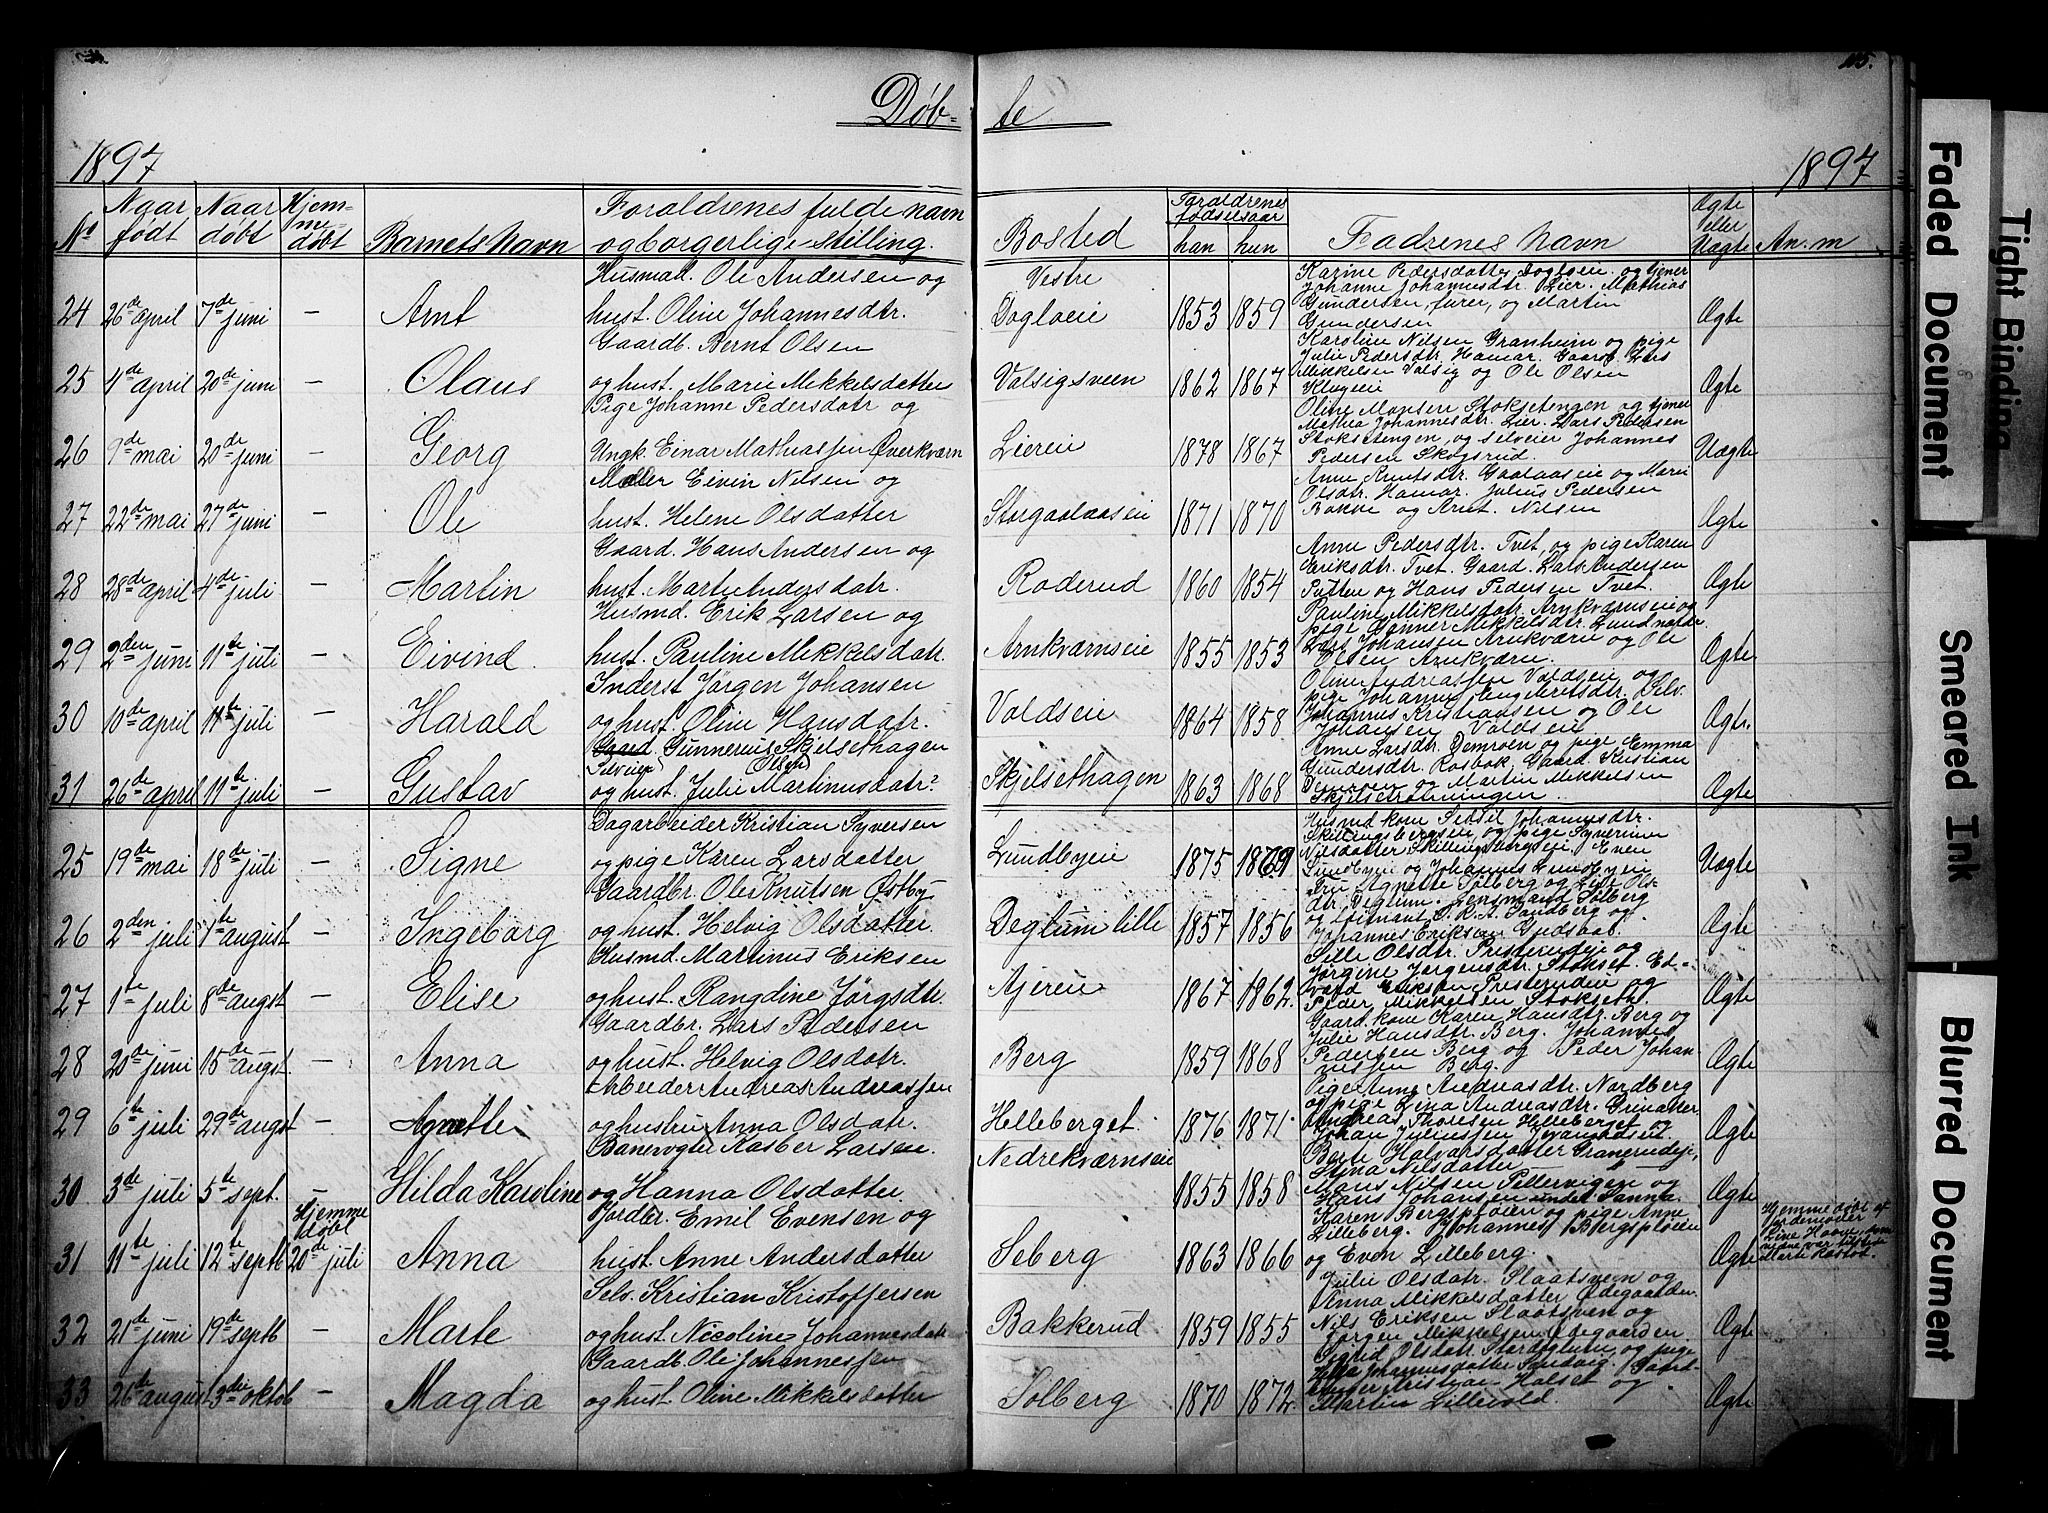 115.
Døb= te
1897 1897
No Naar født Naar døbt Hjem= me= døbt Barnets Navn Foraldrenes fulde navn og borgerlige stilling. Bosted Foraldrenes fødselsaar han hun Fadrenes Navn Ægte eller Uægte An.m
Husmd. Ole Andersen og Vestre Karine Pedersdatter Dogloeie og tjener
Johanne Johannesdtr Lier. Mathias
24 26de april 7de juni — Arnt hust. Oline Johannesdtr. Dogloeie 1853 1859 Gundersen, furer, og Martin Ægte
Gundersen
Gaardb. Bernt Olsen Karoline Nilsen Granheim og pige
Julie Pedersdtr. Hamar. Gaarb. Lars
25 4de april 20de juni — Olaus og hust. Marie Mikkelsdatter Volsigsveen 1862 1867 Mikkelsen Volsig og Ole Olsen Ægte
Pige Johanne Pedersdatr og Oline Monsen Stoksetengen og tjener
Mathea Johannesdtr. Lier. Lars Pedersen
26 9de mai 20de juni — Georg Ungk. Einar Mathiassen Øverkværn Liereie 1878 1867 Stoksetengen, og selveier Johannes Uægte
Pedersen Skogsrud.
Møller Eivin Nilsen og Anne Arntsdtr. Gaalaaseie og Marie
Olsdtr. Hamar. Julius Pedersen
27 22de mai 27de juni — Ole hust. Helene Olsdatter Storgaalaaseie 1871 1870 Bakke og Arnt. Nilsen Ægte
Gaard. Hans Andersen og Anne Pedersdtr. Tvet, og pige Karen
Eriksdtr. Tvet. Gaard. Lars Andersen
28 28de april 4de juli — Martin hust. Marte Andersdatr. Roderud 1860 1854 Putten og Hans Pedersen Tvet. Ægte
Husmd. Erik Larsen og Pauline Mikkelsdatr. Arnkværnseie og
pige Mikkelsdtr. Lund
29 2den juni 11te juli — Eivind hust. Pauline Mikkelsdatr. Arnkværnseie 1855 1853 Lars Johansen Arnkværn og Ole Ægte
Olsen Arnkværn.
Inderst Jørgen Johansen Oline Andreassen Voldseie og
pige Johanne Engebretsdtr. Selv.
30 10de april 11te juli — Harald og hust. Oline Hansdatr. Voldseie 1864 1858 Johannes Kristiansen og Ole Ægte.
Johansen Voldseie
Gaard. Gunnerius Skjelsethagen Anne Larsdtr. Demroen og pige Emma
Selveier Olsen Gundersdtr. Rosbak, Gaard. Kristian
31 26de april 11te juli — Gustav og hust. Julie Martinusdatr? Skjelsethagen 1863 1868 Demroen og Martin Mikkelsen Ægte
Dagarbeider Kristian Syversen Husmd kone Sedsil Johannesdtr.
Skillingsbergseie, og pige Syverine
25 19de mai 18de juli — Signe og pige Karen Larsdatter Lundbyeie 1875 1879 Nilsdatter Skillingsbergseie, Even Uægte
Lundbyeie og Johannes Lundbyeie
Gaardbr. Ole Knutsen Østby Fru Agnette Solberg og Lise Ols-
dtr. Degtum. Lensmand Solberg
26 2den juli 1te august — Ingeborg og hust. Helvig Olsdatter. Degtum lille 1857 1856 og løitnant O.K.A. Sandberg og Ægte
Johannes Eriksen
Husmd. Martinus Eriksen Sille Olsdtr. Presterudeie og
Jørgine Jørgensdtr. Stokset. Ed-
27 1te juli 8de augst — Elise og hust. Rangdine Jørgsdtr. Ajereie 1867 1862. vard Eriksen Presterudeie og Ægte
Peder Mikkelsen Stokseth.
Gaardbr. Lars Pedersen Gaard. kone Karen Hansdtr. Berg og
Julie Hansdtr. Berg. Johannes
28 20de juni 15de augst. — Anna og hust. Helvig Olsdatr. Berg 1859 1868 Pedersen Berg og Peder Johan- Ægte
nessen Berg.
Arbeider Andreas Andreassen Pige Andreasdtr. Nordberg
og pige Lina Andreasdtr.
29 6te juli 29de augst — Agnette og hustru Anna Olsdatr. Helleberget. 1876 1871. Andreas Thoresen Helleberget og Ægte
Johan Juliussen
Banevogter Kasber Larsen. Nedrekværnseie Berte Halvarsdatter Granerudeje,
Stina Nilsdatter — " —
30 3de juli 5te sept. — Hilda Karoline og Hanna Olsdatter. 1855 1858 Hans Nilsen Pellervigen og Ægte
Hans Johansen
Hjemme døbt Jordbr. Emil Evensen og Karen Bergspløien og pige Anne Hjemmedøbt af
Lilleberg. Johannes Bergspløien jordemoder
31 11te juli 12te septb 20de juli Anna hust. Anne Andersdatter Seberg 1863 1866 og Even Lilleberg. Ægte
Selv. Kristian Kristoffersen Julie Olsdatr. Slaatsveen og
Anna Mikkelsdatter Ødegaarden.
32 21de juni 19de septb — Marte og hust. Nicoline Johannesdatr Bakkerud 1859 1855 Nils Eriksen Slaatsven og Ægte
Jørgen Mikkelsen Ødegaarden.
Gaardb. Ole Johannessen Sigrid Olsdatr. og pige
Johannesdatter Sandvig.
33 26de august 3die oktob — Magda og hust. Oline Mikkelsdatter Solberg 1870 1872. Kristian Halset og Ægte
Martin Lillevold.
Faded Document
Tight Binding
Smeared Ink
Blurred Document